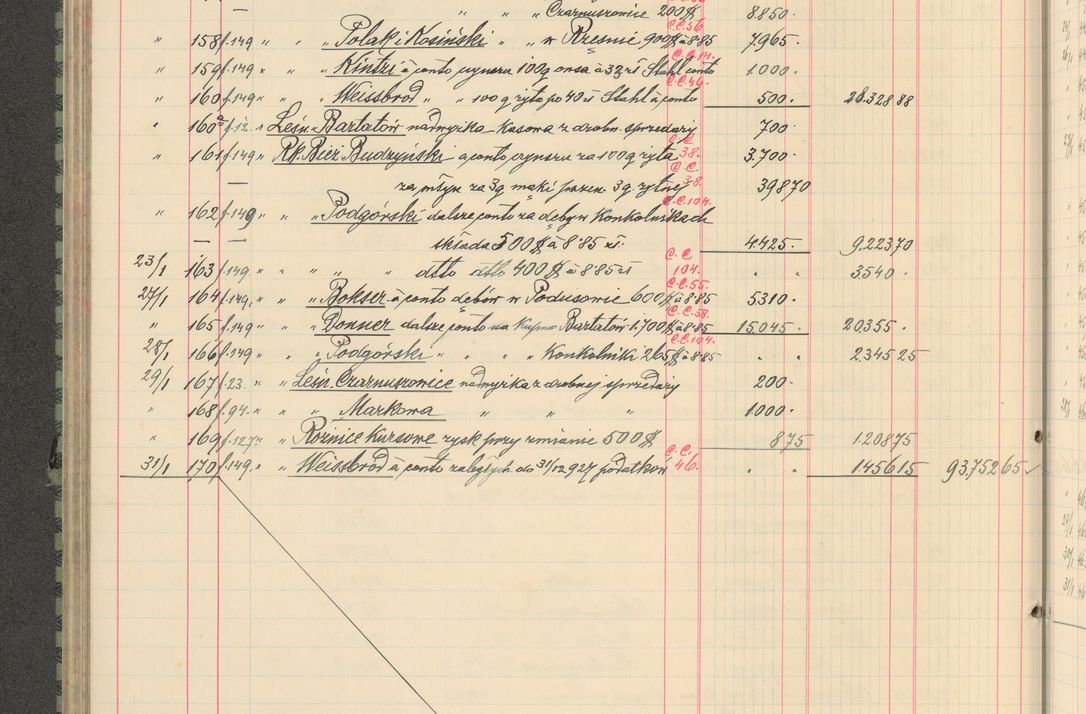 — " " " Czarnuszowice 200$ 8850·
" 158 f.149 " " " Polak i Kosiński " " w Rzesnie 900$ à 8·85 C.C.56. 7965·
" 159 f.149 " " " Kintzi à conto czynszu 100q owsa à 32 zł Stahl conto C.C.14. 1000·
" 160 f.149 " " " Weissbrod " " 100 q żyta po 40 zł Stahl à conto C.C.46. 500· 28.328 88
" 160a f.12. " Leśn. Bartatów nadwyżka kasowa z drobn. sprzedaży 700·
" 161 f.149 " Rk. Bież. Budzyński a conto czynszu za 100 q żyta C.C. 38. 3.700·
— za młyn za 3q mąki przen 3q żytniej C.C. 38. 398 70
" 162 f.149 " " " Podgórski dalsze conto za dęby w Konkolnikach C.C.104.
— — składa 500$ à 8·85 zł. 4425· 9.223 70
23/1 163 f.149. " " " " dtto dtto 400$ à 8·85 zł C.C. 104. " " 3540·
27/1 164 f.149. " " " Bokser à conto dębów w Podusowie 600$ à 8·85 C.C.55. 5310·
" 165 f.149 " " Donner dalsze conto na kupno Bartatów 1.700$ à 8·85 C.C.58. 15.045· 20355·
28/1 166 f.149 " " " Podgórski " " " " Konkolniki 265$ à 8·85 C.C.104. " " 2345 25
29/1 167 f.23. " " Leśn. Czarnuszowice nadwyżka z drobnej sprzedaży 200·
" 168 f.94. " " " Markowa " " " 1000·
" 169 f.127. " " Różnice Kursowe zysk przy zmianie 500$ 8 75 1.208 75
31/1 170 f.149. " " Weissbrod à conto zaległych do 31/12 927 podatków C.C. 46. " " 1456 15 93.752 65 ✓